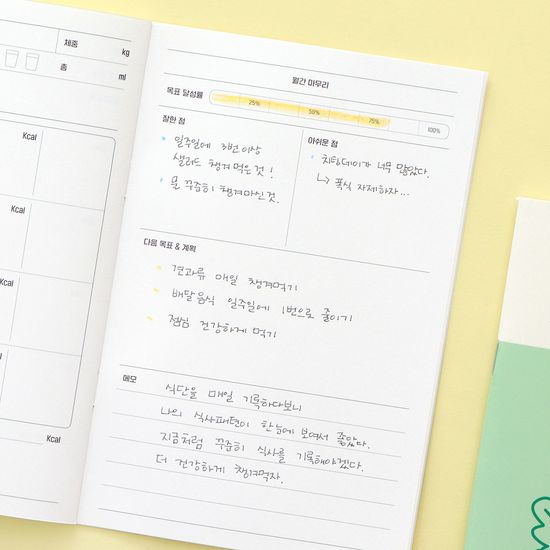 체중 kg
총 ml
Kcal
Kcal
Kcal
Kcal
Kcal
월간 마무리
목표 달성률 25% 50% 75% 100%
잘한 점
일주일에 3번 이상
샐러드 챙겨 먹은 것!
물 꾸준히 챙겨마신 것.
아쉬운 점
치팅데이가 너무 많았다.
↳ 폭식 자제하자...
다음 목표 & 계획
견과류 매일 챙겨먹기
배달음식 일주일에 1번으로 줄이기
점심 건강하게 먹기
메모
식단을 매일 기록하다보니
나의 식사패턴이 한눈에 보여서 좋았다.
지금처럼 꾸준히 식사를 기록해야겠다.
더 건강하게 챙겨먹자.